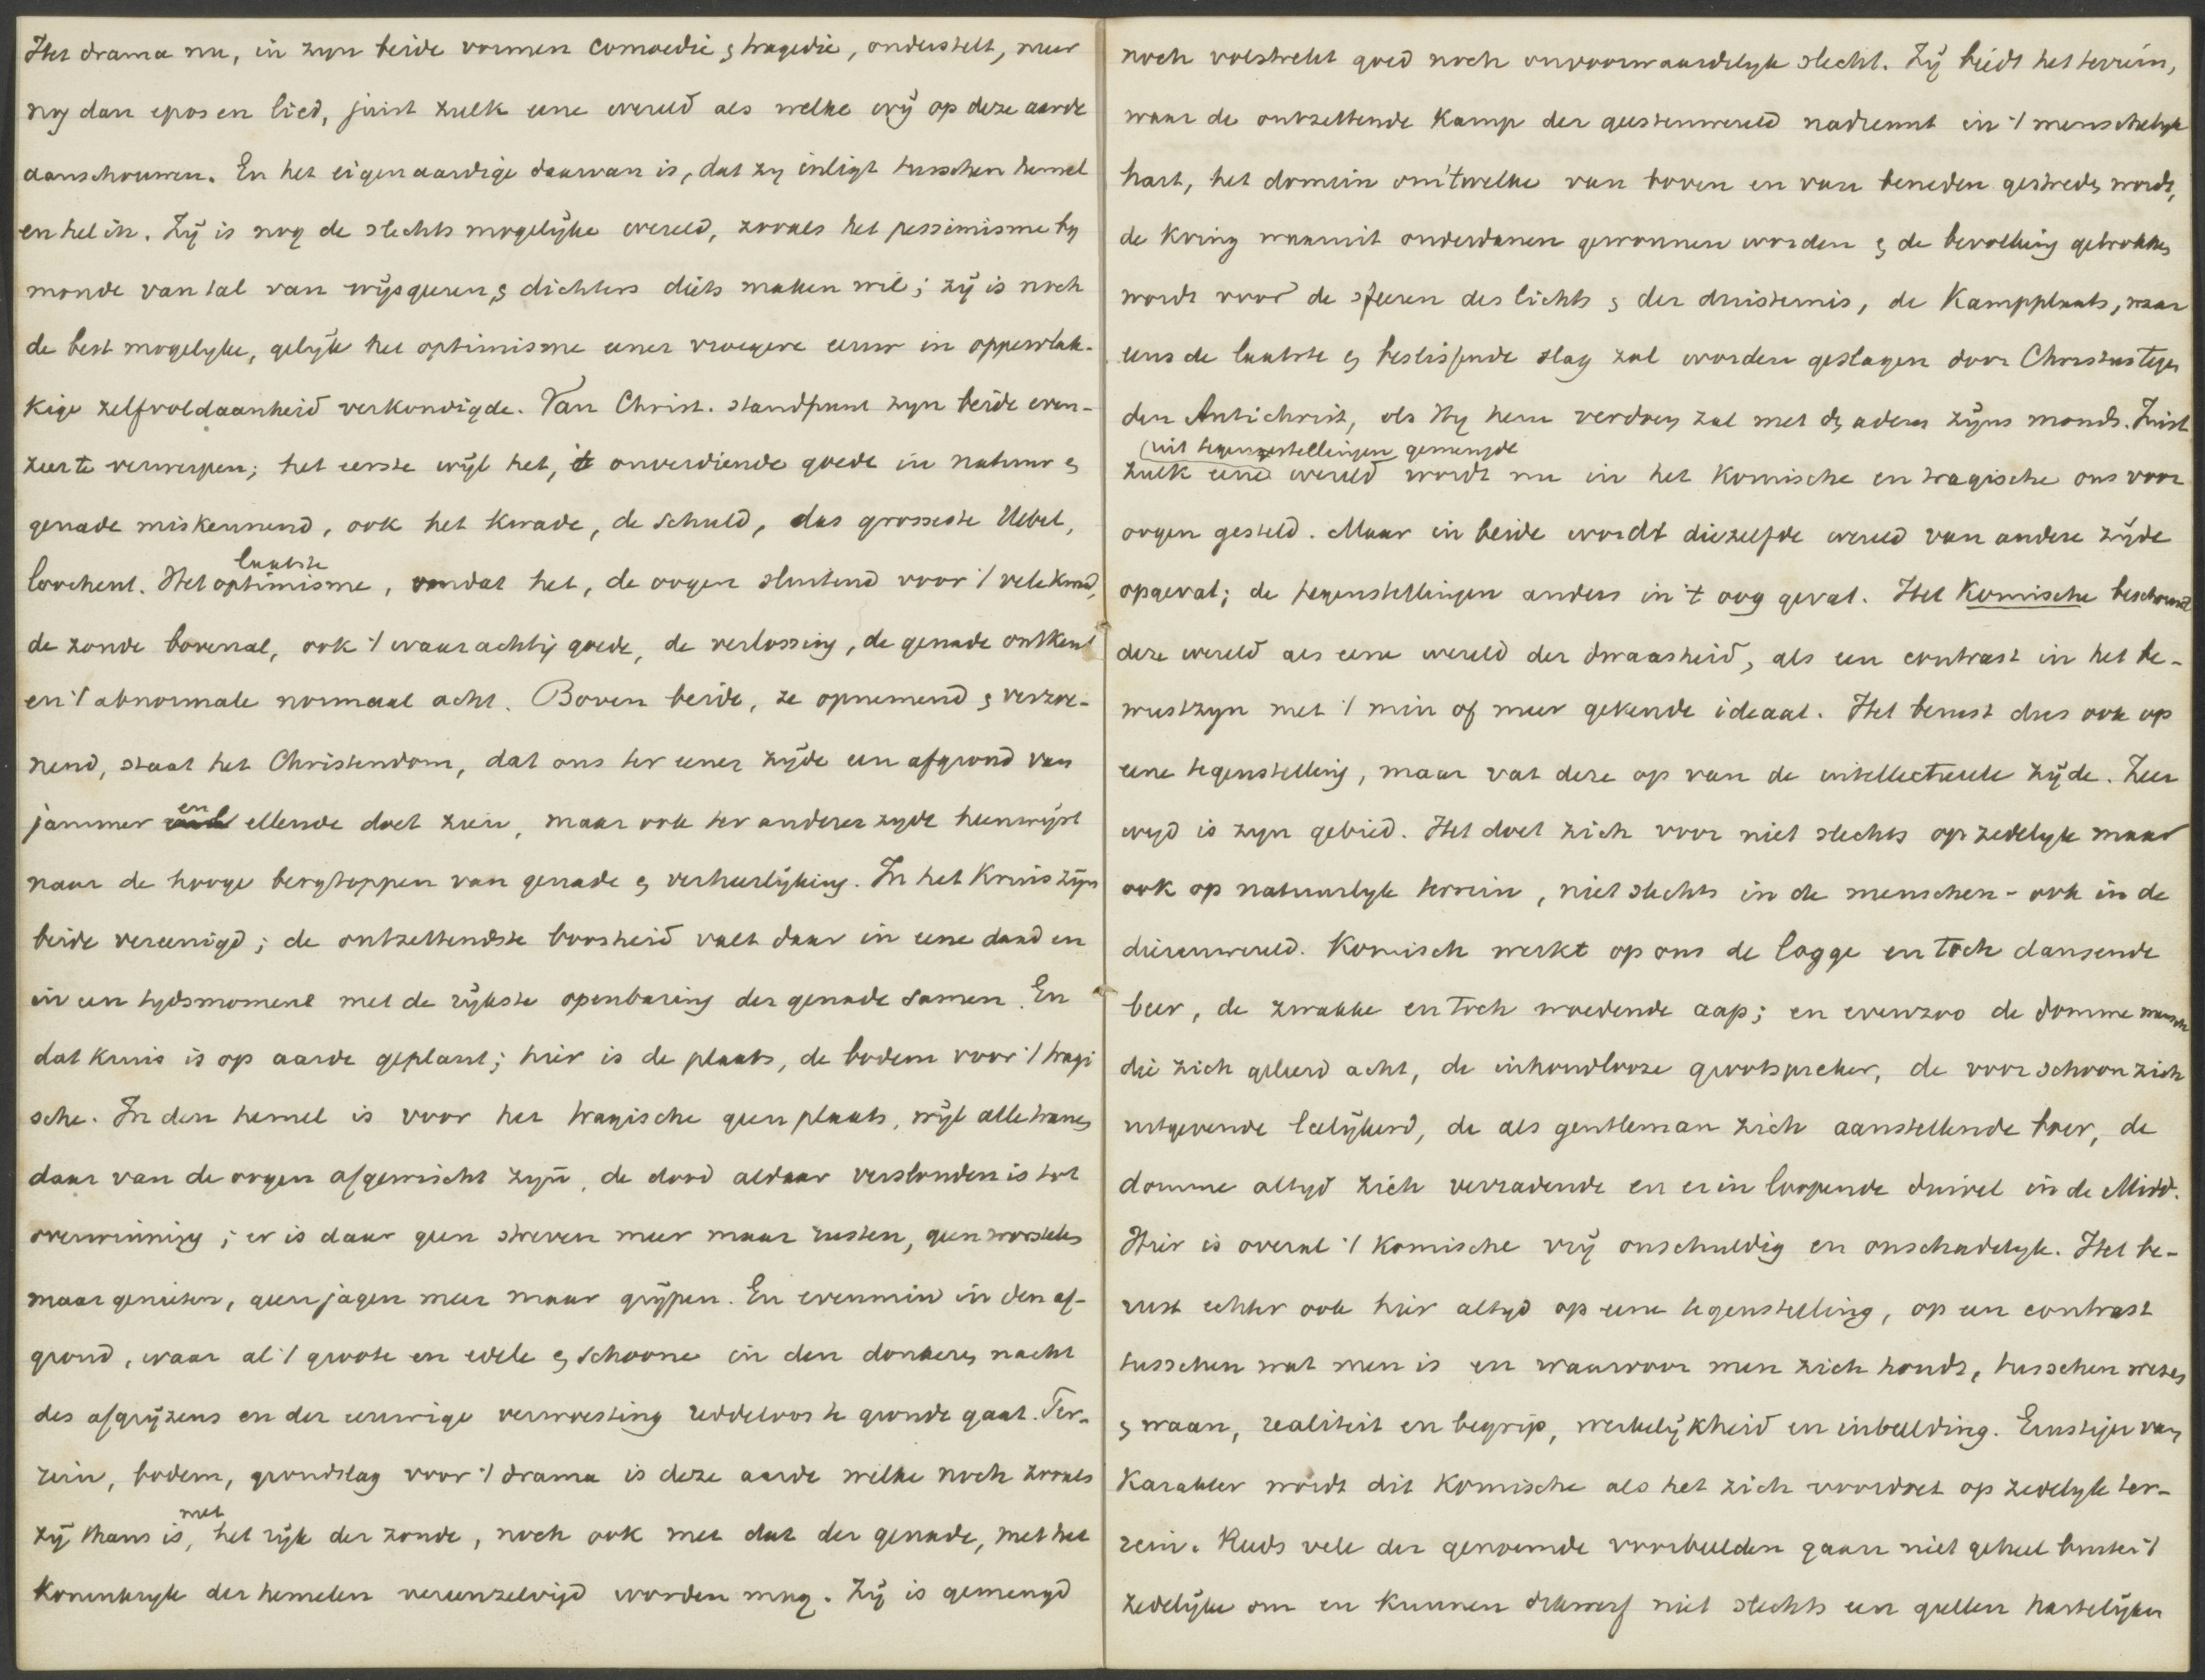 Het drama nu, in zyn beide vormen comoedie & tragedie, onderstelt, meer
nog dan epos en lied, juist zulk eene wereld als welke wy op deze aarde
aanschouwen. En het eigenaardige daarvan is, dat zy inligt tusschen hemel
en hel in. Zy is nog de slechts mogelyke wereld, zooals het pessimisme by
monde van tal van wysgeeren & dichters diets maken wil; zy is noch
de best mogelyke, gelyk het optimisme eener vroegere eeuw in oppervlak-
kige zelfvoldaanheid verkondigde. Van Christ. standpunt zyn beide even-
zeer te verwerpen; het eerste wyl het, 't onverdiende goede in natuur &
genade miskennend, ook het kwade, de schuld, das grosseste Uebel,
loochent. Het laatste optimisme, omdat het, de oogen sluitend voor 't vele kwad,
de zonde bovenal, ook 't waarachtig goede, de verlossing, de genade ontkent
en 't abnormale normaal acht. Boven beide, ze opnemend & verzoe-
nend, staat het Christendom, dat ons ter eener zyde een afgrond van
jammer en ellende doet zien, maar ook ter anderer zyde heenwyst
naar de hooge bergtoppen van genade & verheerlyking. In het Kruis zyn
beide vereenigd; de ontzettendste boosheid valt daar in eene daad en
in een tydsmoment met de rykste openbaring der genade samen. En
dat kruis is op aarde geplant; hier is de plaats, de bodem voor 't tragi
sche. In den hemel is voor het tragische geen plaats, wyl alle tranen
daar van de oogen afgewischt zyn, de dood aldaar verslonden is tot
overwinning; er is daar geen streven meer maar rusten, geen worstelen
maar genieten, geen jagen meer maar grypen. En evenmin in den af-
grond, waar al 't groote en edele & schoone in den donkeren nacht
des afgryzens en der eeuwige verwoesting reddeloos te gronde gaat. Ter-
rein, bodem, grondslag voor 't drama is deze aarde welke noch zooals
zy thans is, met het ryk der zonde, noch ook met dat der genade, met het
Koninkryk der hemelen vereenzelvigd worden mag. Zy is gemengd
noch volstrekt goed noch onvoorwaardelyk slecht. Zy biedt het terrein,
waar de ontzettende Kamp der geestenwereld nadreunt in 't menschelyk
hart, het domein om 'twelke van boven en van beneden gestreden wordt,
de Kring waaruit onderdanen gewonnen worden & de bevolking getrokken
wordt voor de sfeeren des lichts & der duisternis, de Kampplaats, waar
eens de laatste & beslissende slag zal worden geslagen door Christus tegen
den Antichrist, als Hy hem verdoen zal met den adem zyns monds. Juist
(uit tegenstellingen gemengde
zulk eene wereld wordt nu in het Komische en tragische ons voor
oogen gesteld. Maar in beide wordt diezelfde wereld van andere zyde
opgevat; de tegenstellingen anders in 't oog gevat. Het Komische beschouwt
deze wereld als eene wereld der dwaasheid, als een contrast in het be-
wustzyn met 't min of meer gekende ideaal. Het berust dus ook op
eene tegenstelling, maar vat deze op van de intellectueele zyde. Zeer
wyd is zyn gebied. Het doet zich voor niet slechts op zedelyk maar
ook op natuurlyk terrein, niet slechts in de menschen- ook in de
dierenwereld. Komisch werkt op ons de logge en toch dansende
beer, de zwakke en toch woedende aap; en evenzoo de domme mensch
die zich geleerd acht, de inhoudlooze grootspreker, de voor schoon zich
uitgevende leelykerd, de als gentleman zich aanstellende boer, de
domme altyd zich verradende en er in loopende duivel in de Midd.
Hier is overal 't Komische vry onschuldig en onschadelyk. Het be-
rust echter ook hier altyd op eene tegenstelling, op een contrast
tusschen wat men is en waarvoor men zich houdt, tusschen wezen
& waan, realiteit en begrip, werkelykheid en inbeelding. Ernstiger van
Karakter wordt dit Komische als het zich voordoet op zedelyk ter-
rein. Reeds vele der genoemde voorbeelden gaan niet geheel buiten 't
zedelyke om en kunnen dikwerf niet slechts een gullen hartelyken